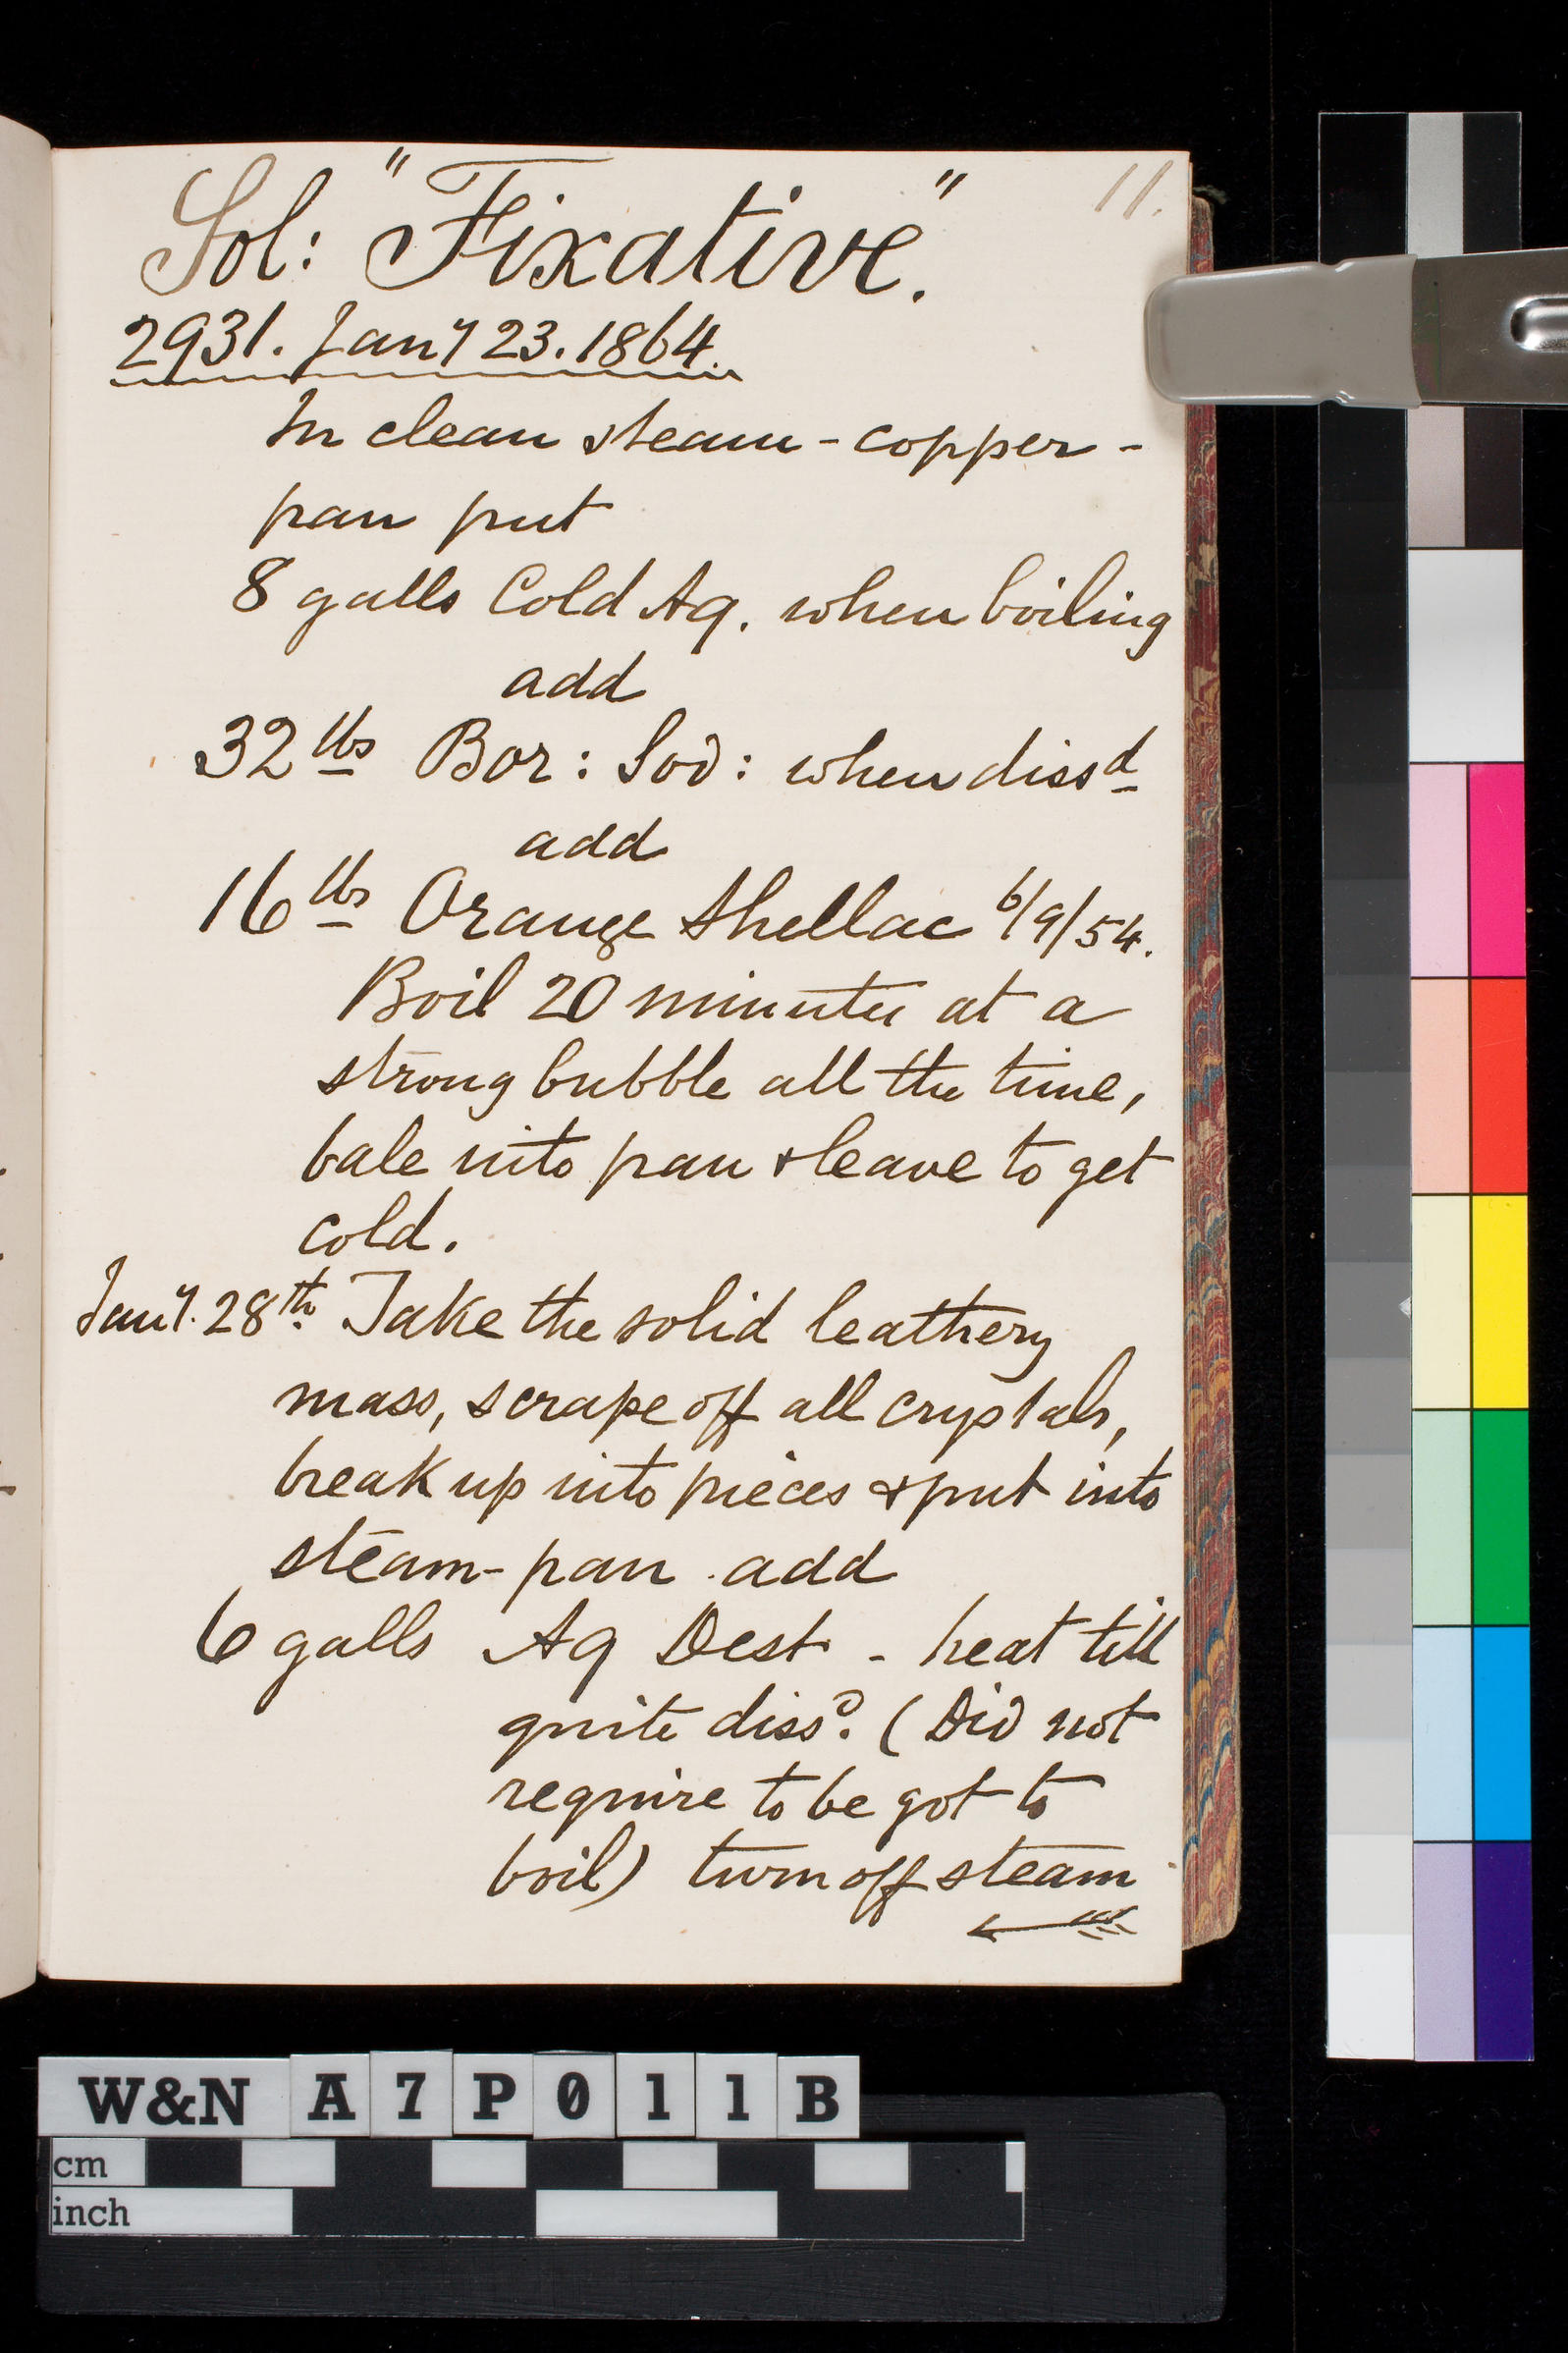 11.
Sol: "Fixative".
2931. Jany 23. 1864.
In clean steam-copper-
pan put
8 galls Cold Aq. when boiling
add
32 lbs Bor: Sod: when dissd
add
16 lbs Orange Shellac 6/9/54.
Boil 20 minutes at a
strong bubble all the time,
bale into pan & leave to get
cold.
Jany. 28th Take the solid leathery
mass, scrape off all crystals,
break up into pieces & put into
steam-pan. add
6 galls Aq Dest. - heat till
quite dissd. (Did not
require to be got to
boil) turn off steam
W&N A7P011B
cm
inch